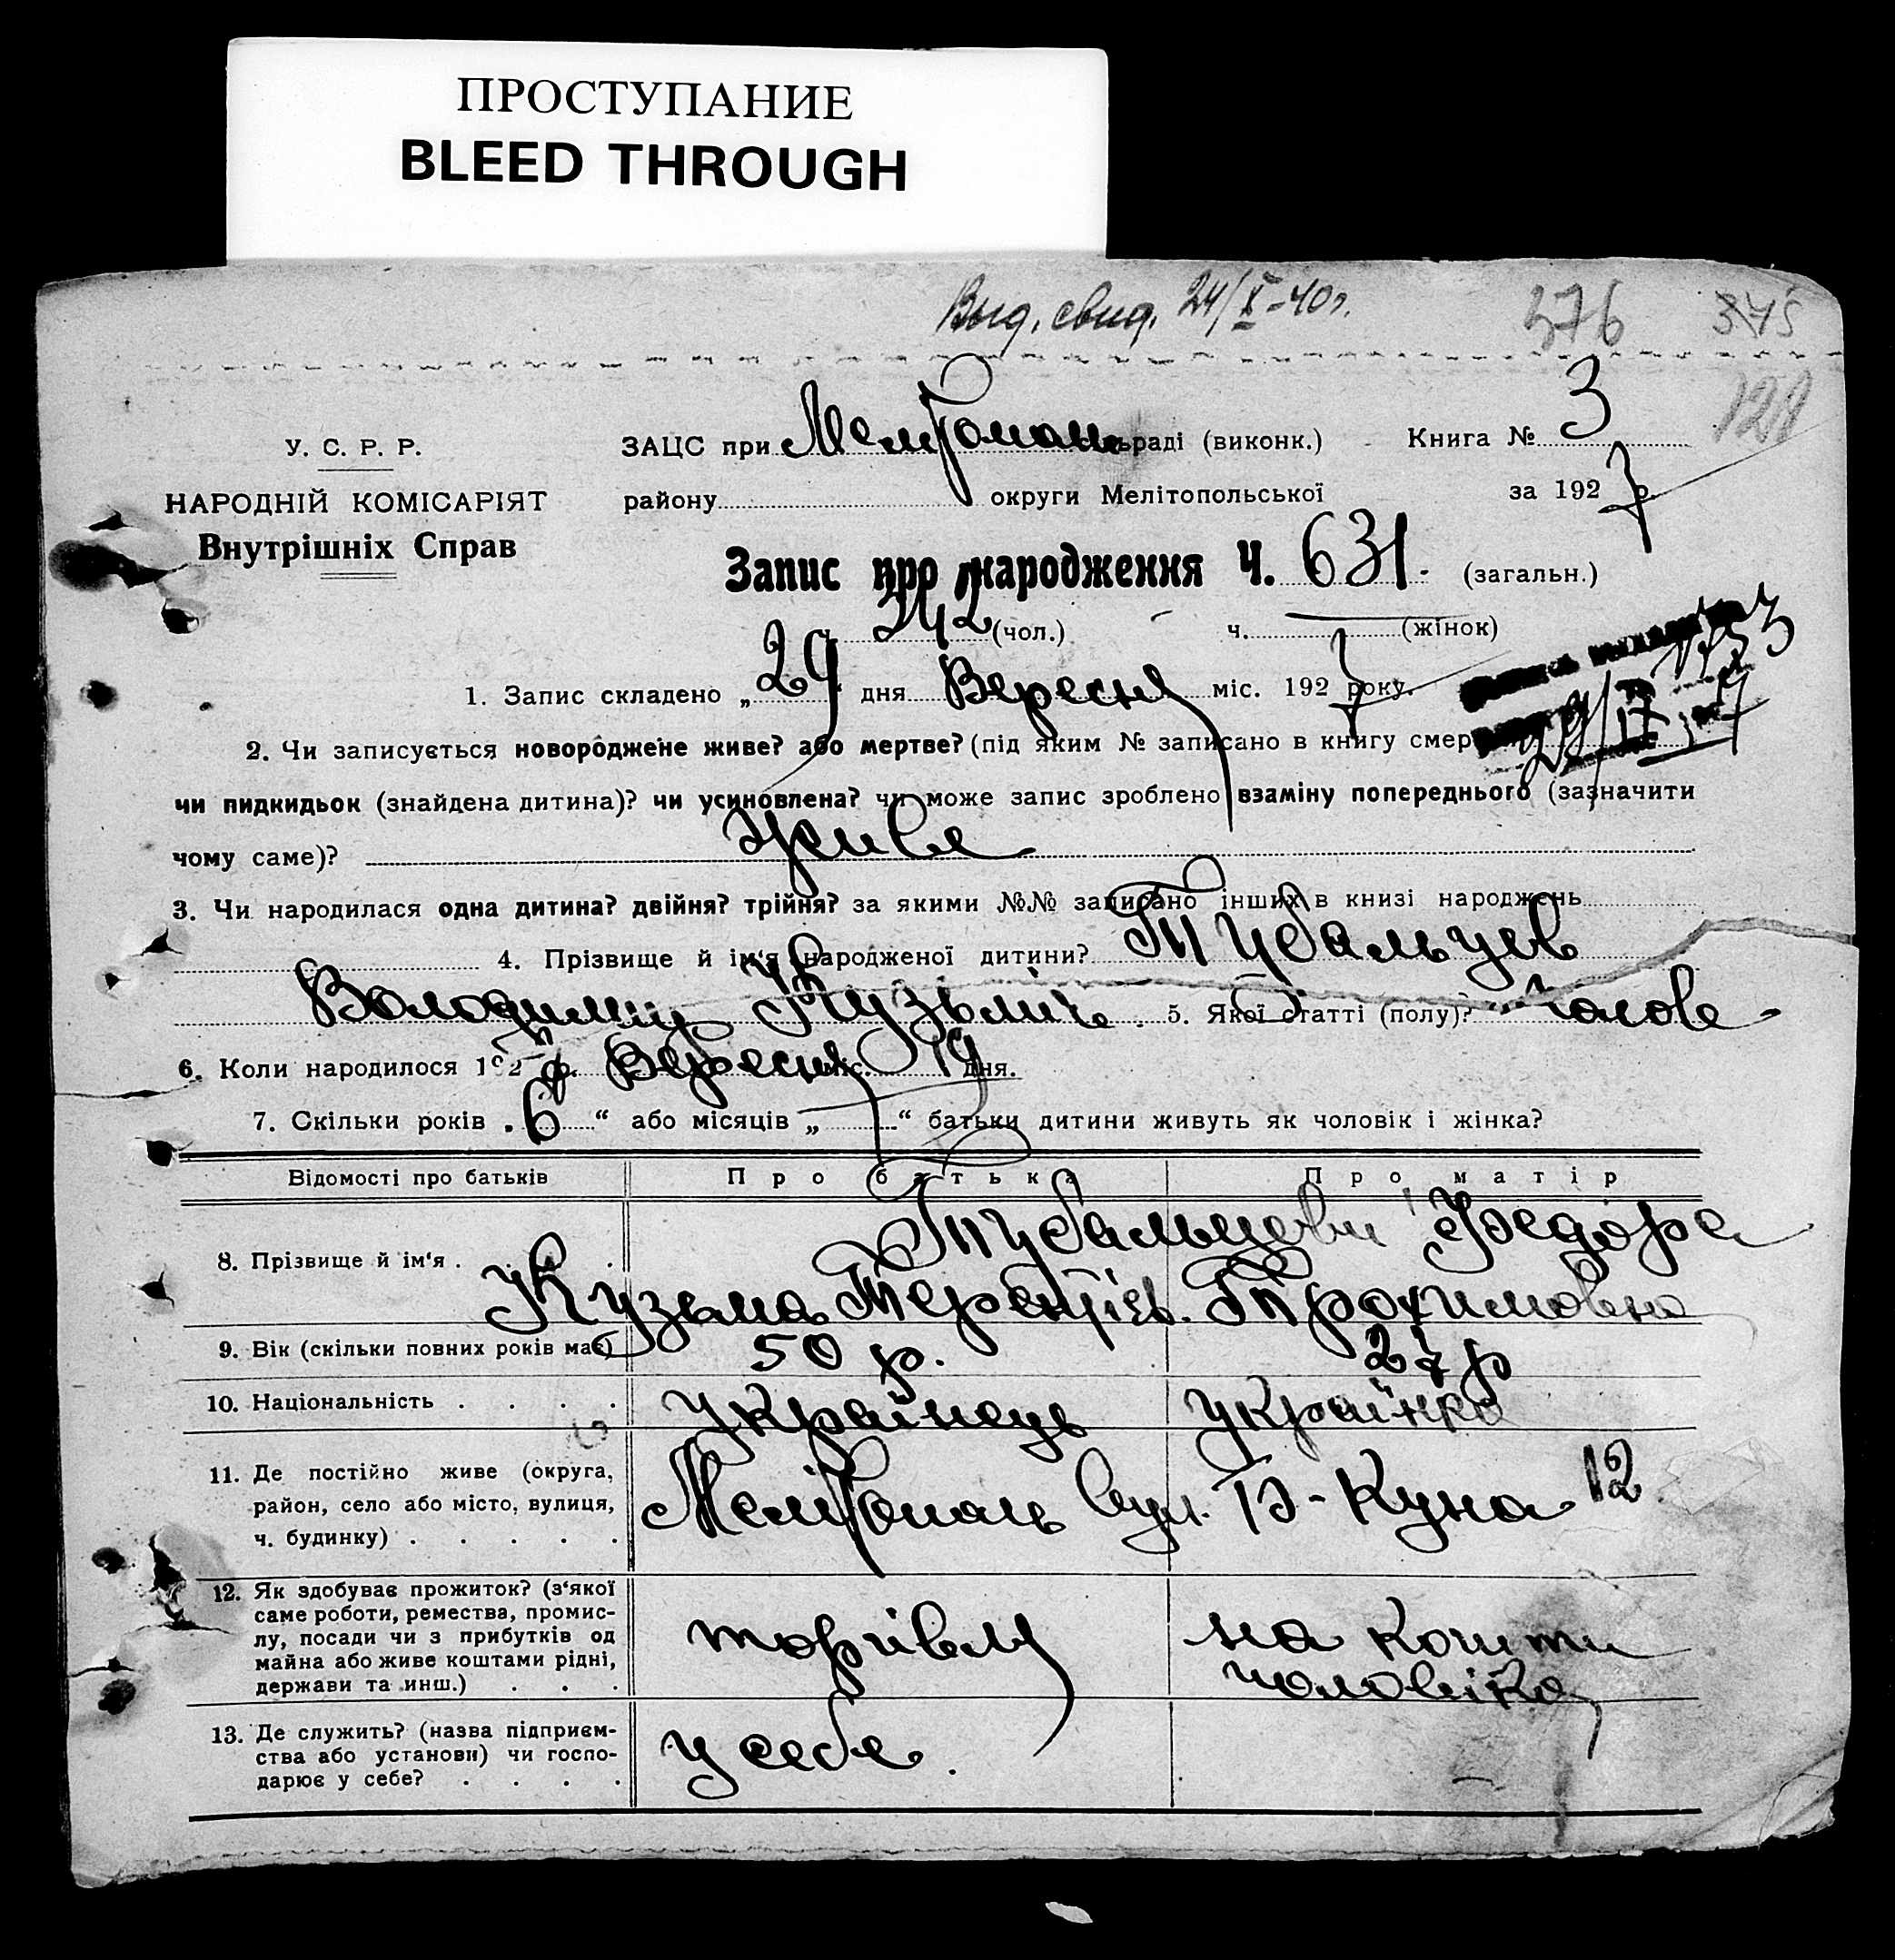 ПРОСТУПАНИЕ
BLEED THROUGH
Выд. свид. 24/X-40г.
376 345
121
У. С. Р. Р.
НАРОДНІЙ КОМІСАРІЯТ
Внутрішніх Справ
ЗАЦС при Мелітопольраді (виконк.) Книга № 3
району округи Мелітопольської за 1927 р.
Запис про народження Ч. 631. (загальн.)
342 (чол.) ч. — (жінок)
1. Запис складено „ 29 дня Вересня міс. 1927 року.
29/IX-27
2. Чи записується новороджене живе? або мертве? (під яким № записано в книгу смер
чи пидкидьок (знайдена дитина)? чи усиновлена? чи може запис зроблено взаміну попереднього (зазначити
чому саме)? Живе
3. Чи народилася одна дитина? двійня? трійня? за якими №№ записано інших в книзі народжень
4. Прізвище й ім'я народженої дитини? Тубальцев
Володимир Кузьмич. 5. Якої статті (полу)? Чолове
6. Коли народилося 1927 р. Вересня міс. 19 дня.
7. Скільки років „ 6 “ або місяців „ — “ батьки дитини живуть як чоловік і жінка?
Відомості про батьків Про батька Про матір
8. Прізвище й ім'я . Тубальцеви Федора
Кузьма Терентіев. Трохимовна
9. Вік (скільки повних років має) 50 р. 27 р
10. Національність . . . . українець українка
11. Де постійно живе (округа,
район, село або місто, вулиця,
ч. будинку) . . . . .
Мелітополь вул. Б-Куна 12
12. Як здобуває прожиток? (з'якої
саме роботи, ремества, промис-
лу, посади чи з прибутків од
майна або живе коштами рідні,
держави та инш.) . . .
торгівля на кошти
чоловіка
13. Де служить? (назва підприєм-
ства або установи) чи госпо-
дарює у себе? . . . .
у себе.